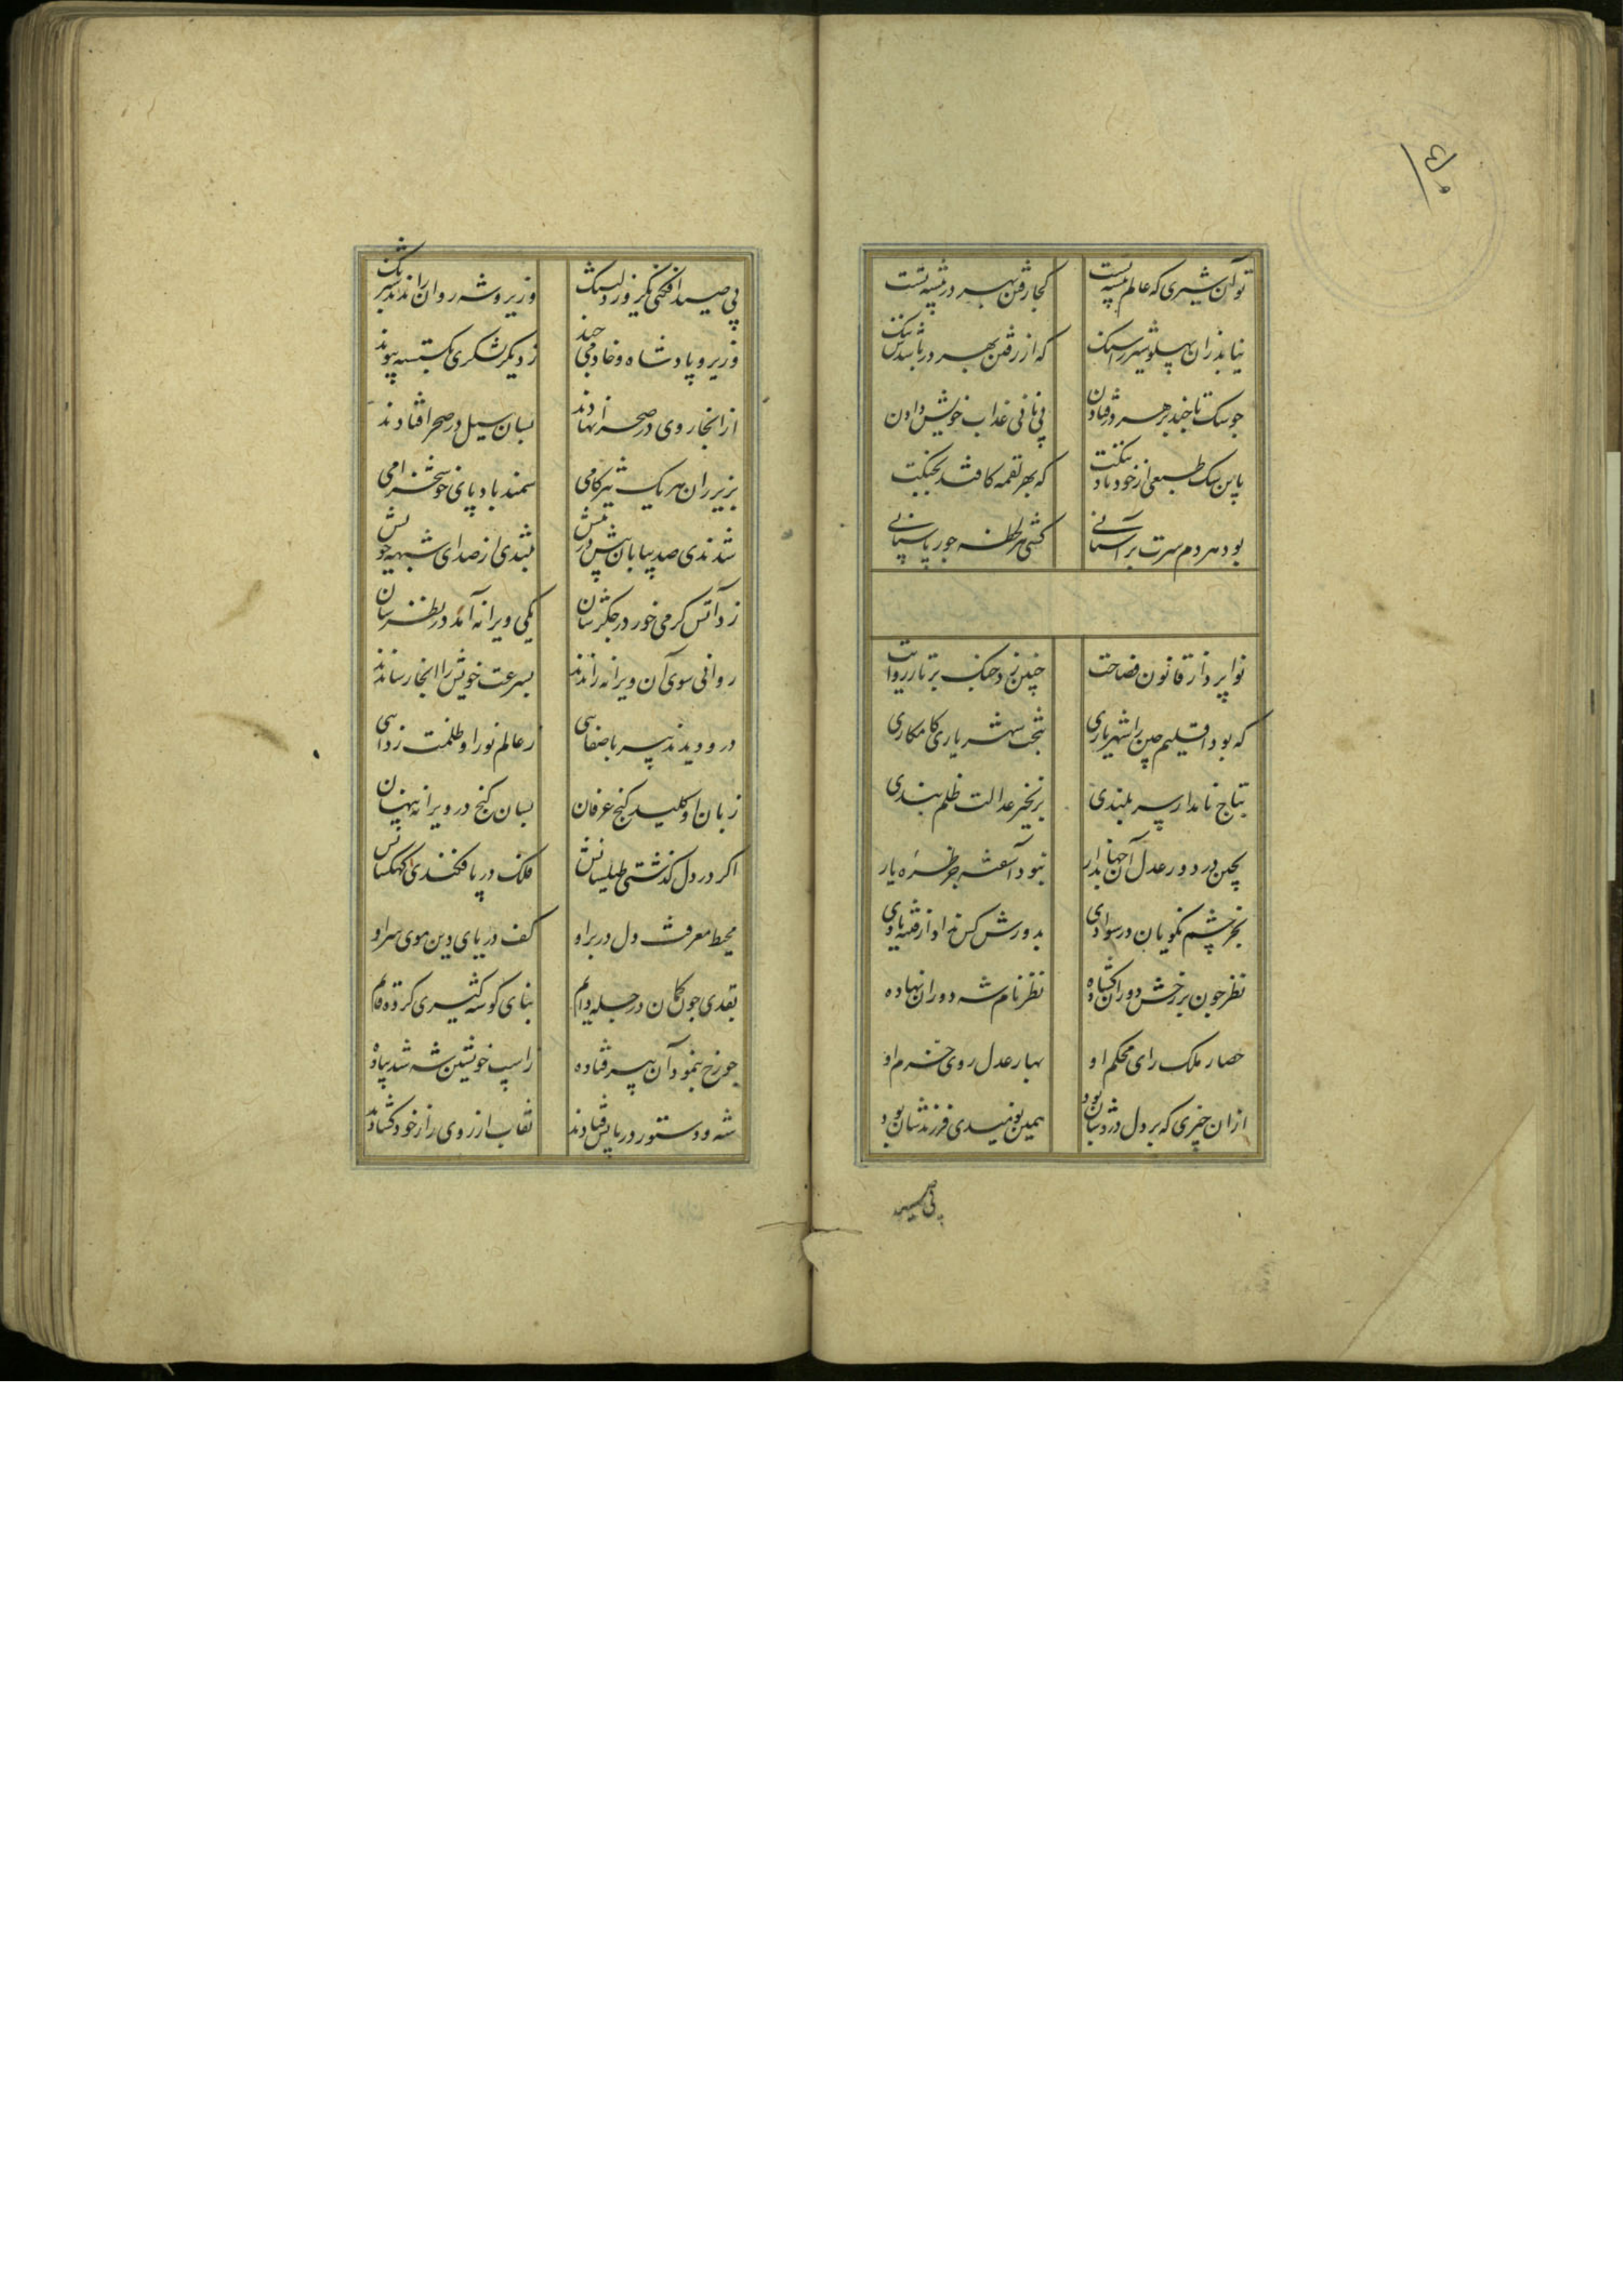 تو آن شیری که عالم بیشه تست کجا رفتن بهر در پیشه تست
نیاید زان پهلو شیر را سنک که از رفتن بهر در باشدش ننک
جو سک تا چند بر هر در فتادن پی نانی عذاب خویش دادن
باین سک طبعی از خود باد ننکت که بهر لقمه کافتد بچنکت
بود هر دم سرت بر آستانی کشی هر لحظه جور پاسبانی
نوا پرداز قانون فصاحت چنین زد چنک بر تار روایت
که بود اقلیم چین را شهریاری بتخت شهریاری کامکاری
بتاج نامداری سر بلندی بزنجیر عدالت ظلم بندی
بچین در دور عدل آن جهاندار نبود آشفته جز طره یار
بجز چشم نکویان در سوادی بدورش کس نداد از فتنه یادی
نظر چون بر رخش دوران کشاده نظر نام شه دوران نهاده
حصار ملک رای محکم او بهار عدل روی خرم او
ازان چیزی که بر دل دردشان بود همین نومیدی فرزندشان بود
پی صید
پی صید افکنی یک روز دلتنک وزیر و شه روان راندند شبرنک
وزیر و پادشاه و خادمی چند ز دیکر لشکری بکسسته پیوند
از انجا روی در صحرا نهادند بسان سیل در صحرا فتادند
بزیر ران هر یک تیز کامی سمند باد پای خوشخرامی
شدندی صد بیابان بیش در پیش بتندی از صدای شیهه خویش
زد آتش کرمی خور در جکرشان یکی ویرانه آمد در نظرشان
روانی سوی آن ویرانه راندند بسرعت خویش را انجا رساندند
درو دیدند پیر با صفایی ز عالم نور او ظلمت زدایی
زبان او کلید کنج عرفان بسان کنج در ویرانه پنهان
اکر در دل کذشتی طیلسانش فلک در پا فکندی کهکشانش
محیط معرفت دل در بر او کف دریای دین موی سر او
بقدی چون کمان در چله دایم بنای کوشه کیری کرده قایم
چو رخ بنمود آن پیر فتاده ز اسپ خویشتن شه شد پیاده
شه و دستور در پایش فتادند نقاب از روی راز خود کشادند